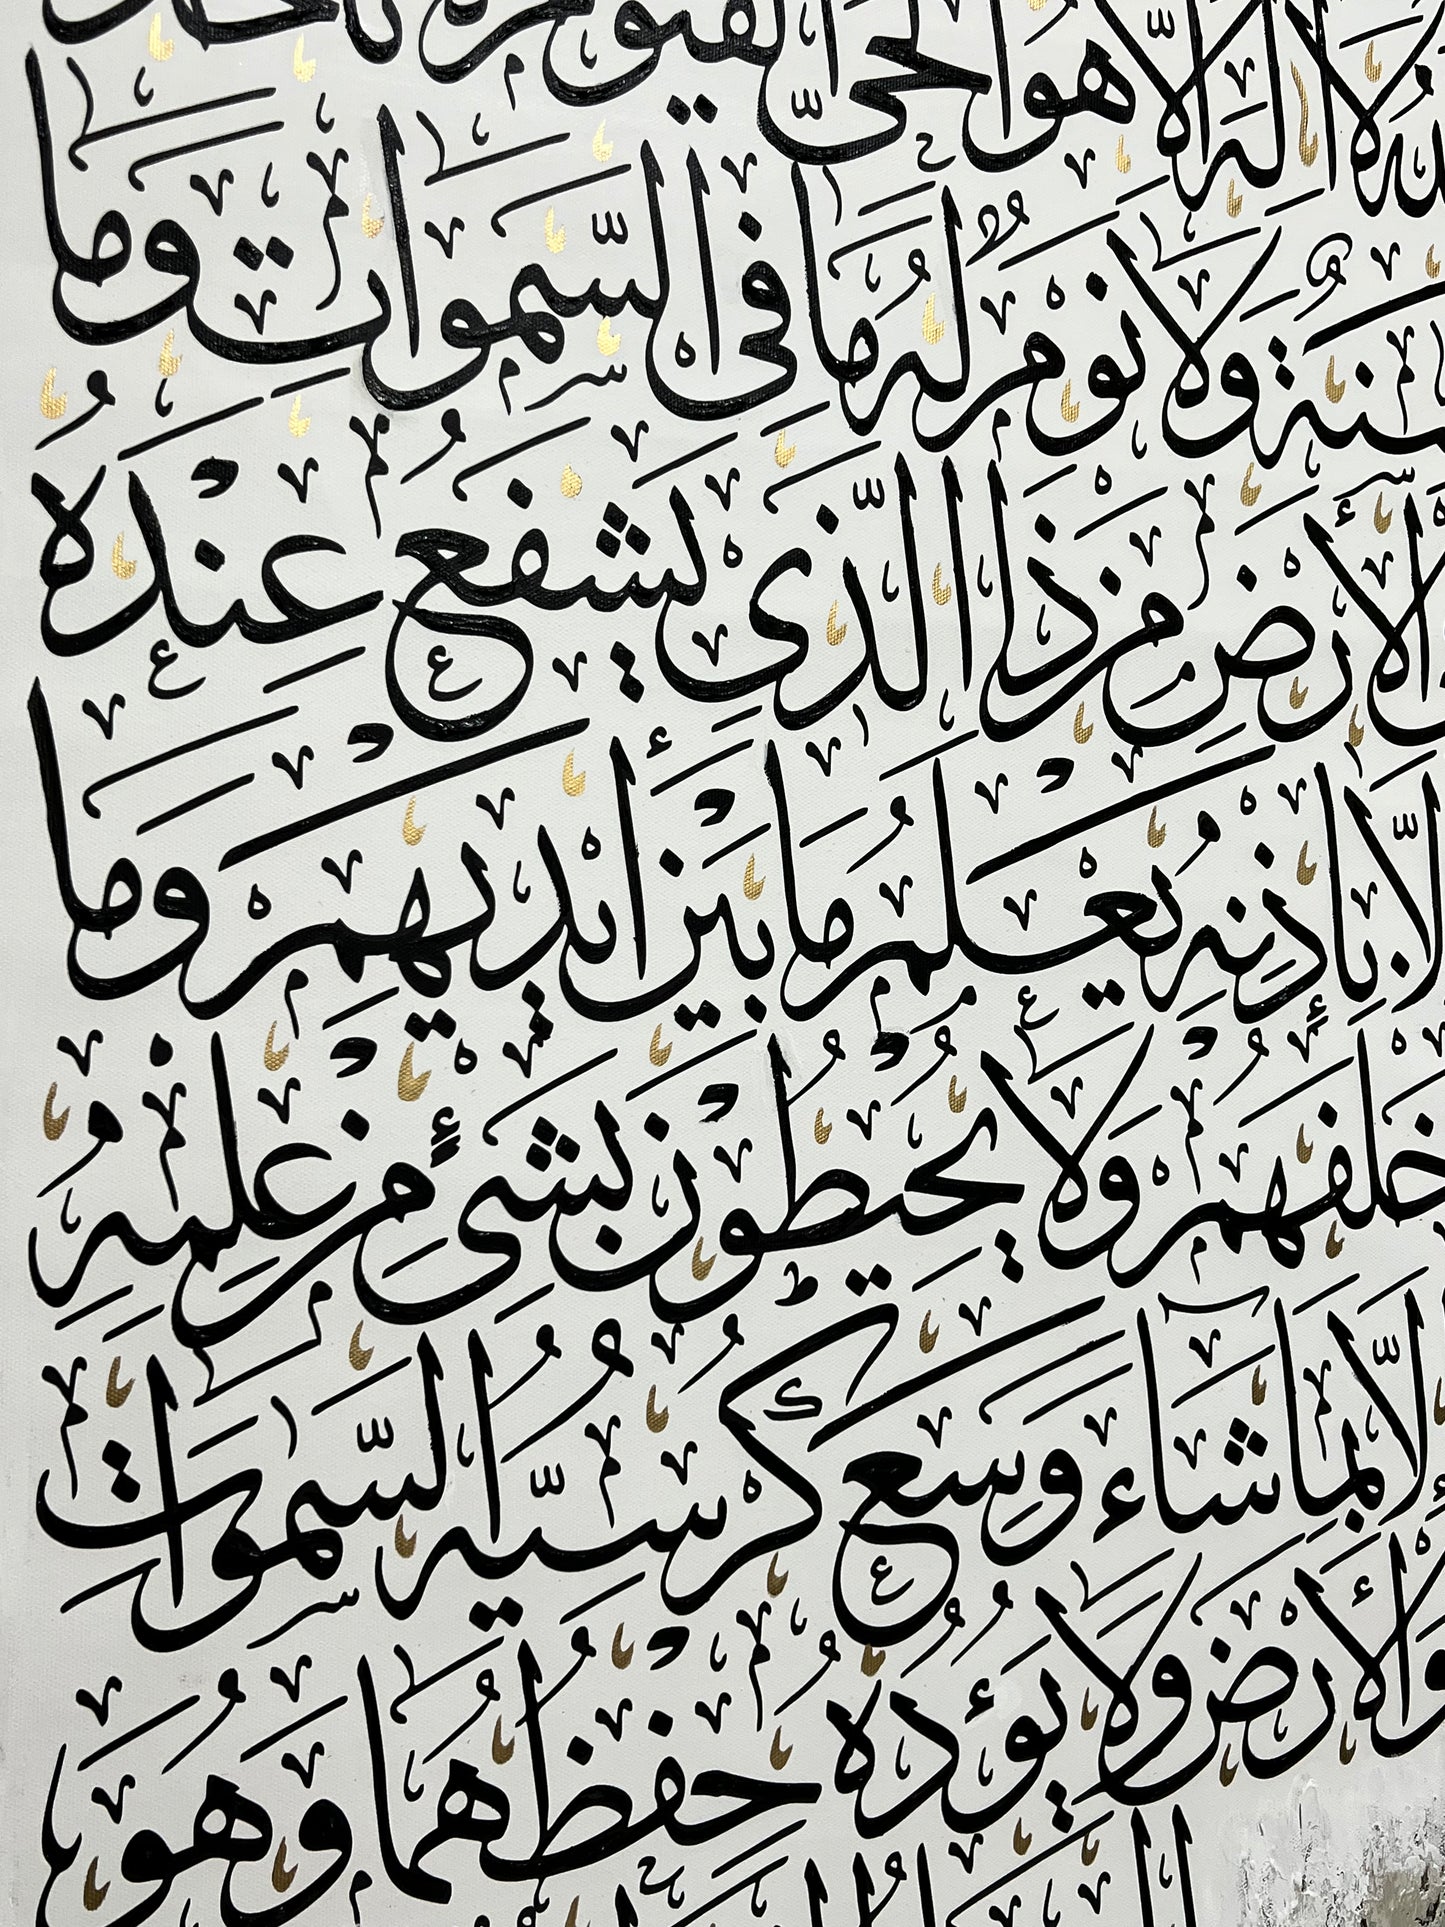 لَا اِلٰهَ اِلَّا هُوَ الْحَیُّ الْقَيُّومُ
سِنَةٌ وَلَا نَوْمٌ لَهُ مَا فِی السَّمٰوَاتِ وَمَا
الْأَرْضِ مَنْ ذَا الَّذِی يَشْفَعُ عِنْدَهُ
اِلَّا بِاِذْنِهِ يَعْلَمُ مَا بَيْنَ أَيْدِيهِمْ وَمَا
خَلْفَهُمْ وَلَا يُحِيطُونَ بِشَیْءٍ مِنْ عِلْمِهِ
اِلَّا بِمَا شَاءَ وَسِعَ كُرْسِيُّهُ السَّمٰوَاتِ
وَالْأَرْضَ وَلَا يَؤُدُهُ حِفْظُهُمَا وَهُوَ